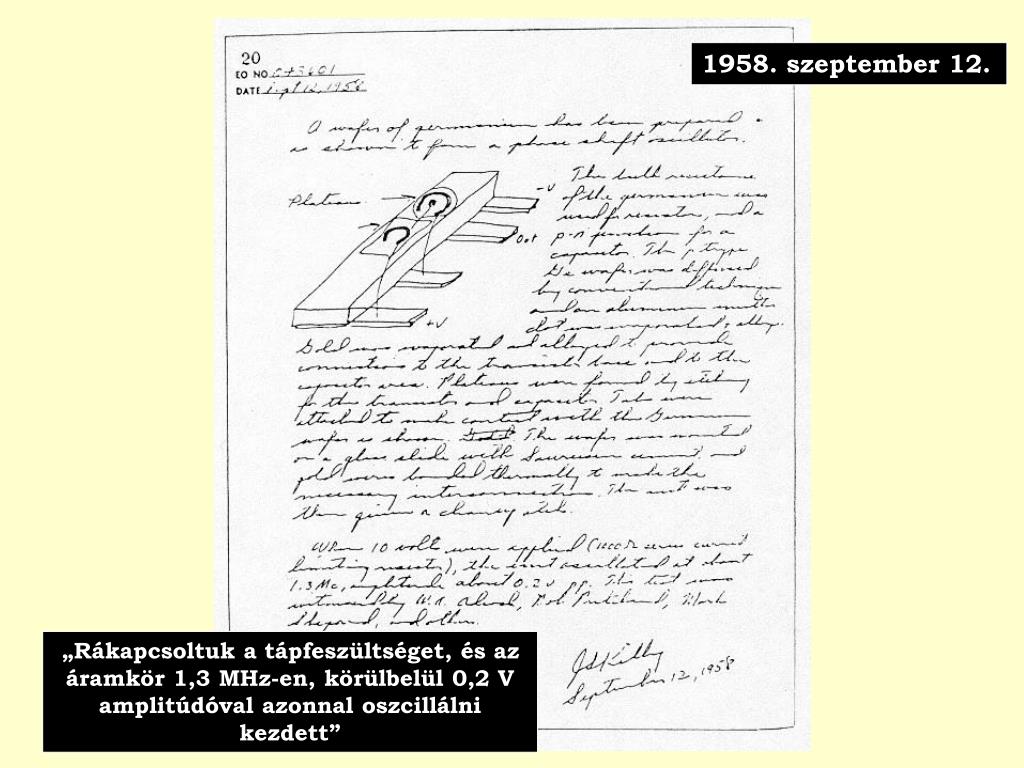 20
EO NO
DATE Sept 12, 1958
1958. szeptember 12.
A wafer of germanium has been prepared
as shown to form a phase shift oscillator.
Plateaus
-V
Out
+V
The bulk resistance
of the germanium was
used for resistors, and a
p-n junction for a
capacitor. The p type
Ge wafer was diffused
by conventional techniques
and an aluminum emitter
dot was evaporated & alloyed.
Gold was evaporated and alloyed to provide
connections to the transistor base and to the
capacitor area. Plateaus were formed by etching
for the transistor and capacitor. Tabs were
attached to make contact with the Germanium
wafer as shown. The wafer was mounted
on a glass slide with Sauereisen cement, and
gold wires bonded thermally to make the
necessary interconnections. The unit was
then given a cleanup etch.
When 10 volts were applied (1000 Ω series current
limiting resistor), the unit oscillated at about
1.3 Mc, amplitude about 0.2 v pp. This test was
witnessed by W.A. Adcock, Bob Pritchard, Mark
Shepherd, and others.
JS Kilby
September 12, 1958
„Rákapcsoltuk a tápfeszültséget, és az
áramkör 1,3 MHz-en, körülbelül 0,2 V
amplitúdóval azonnal oszcillálni
kezdett”